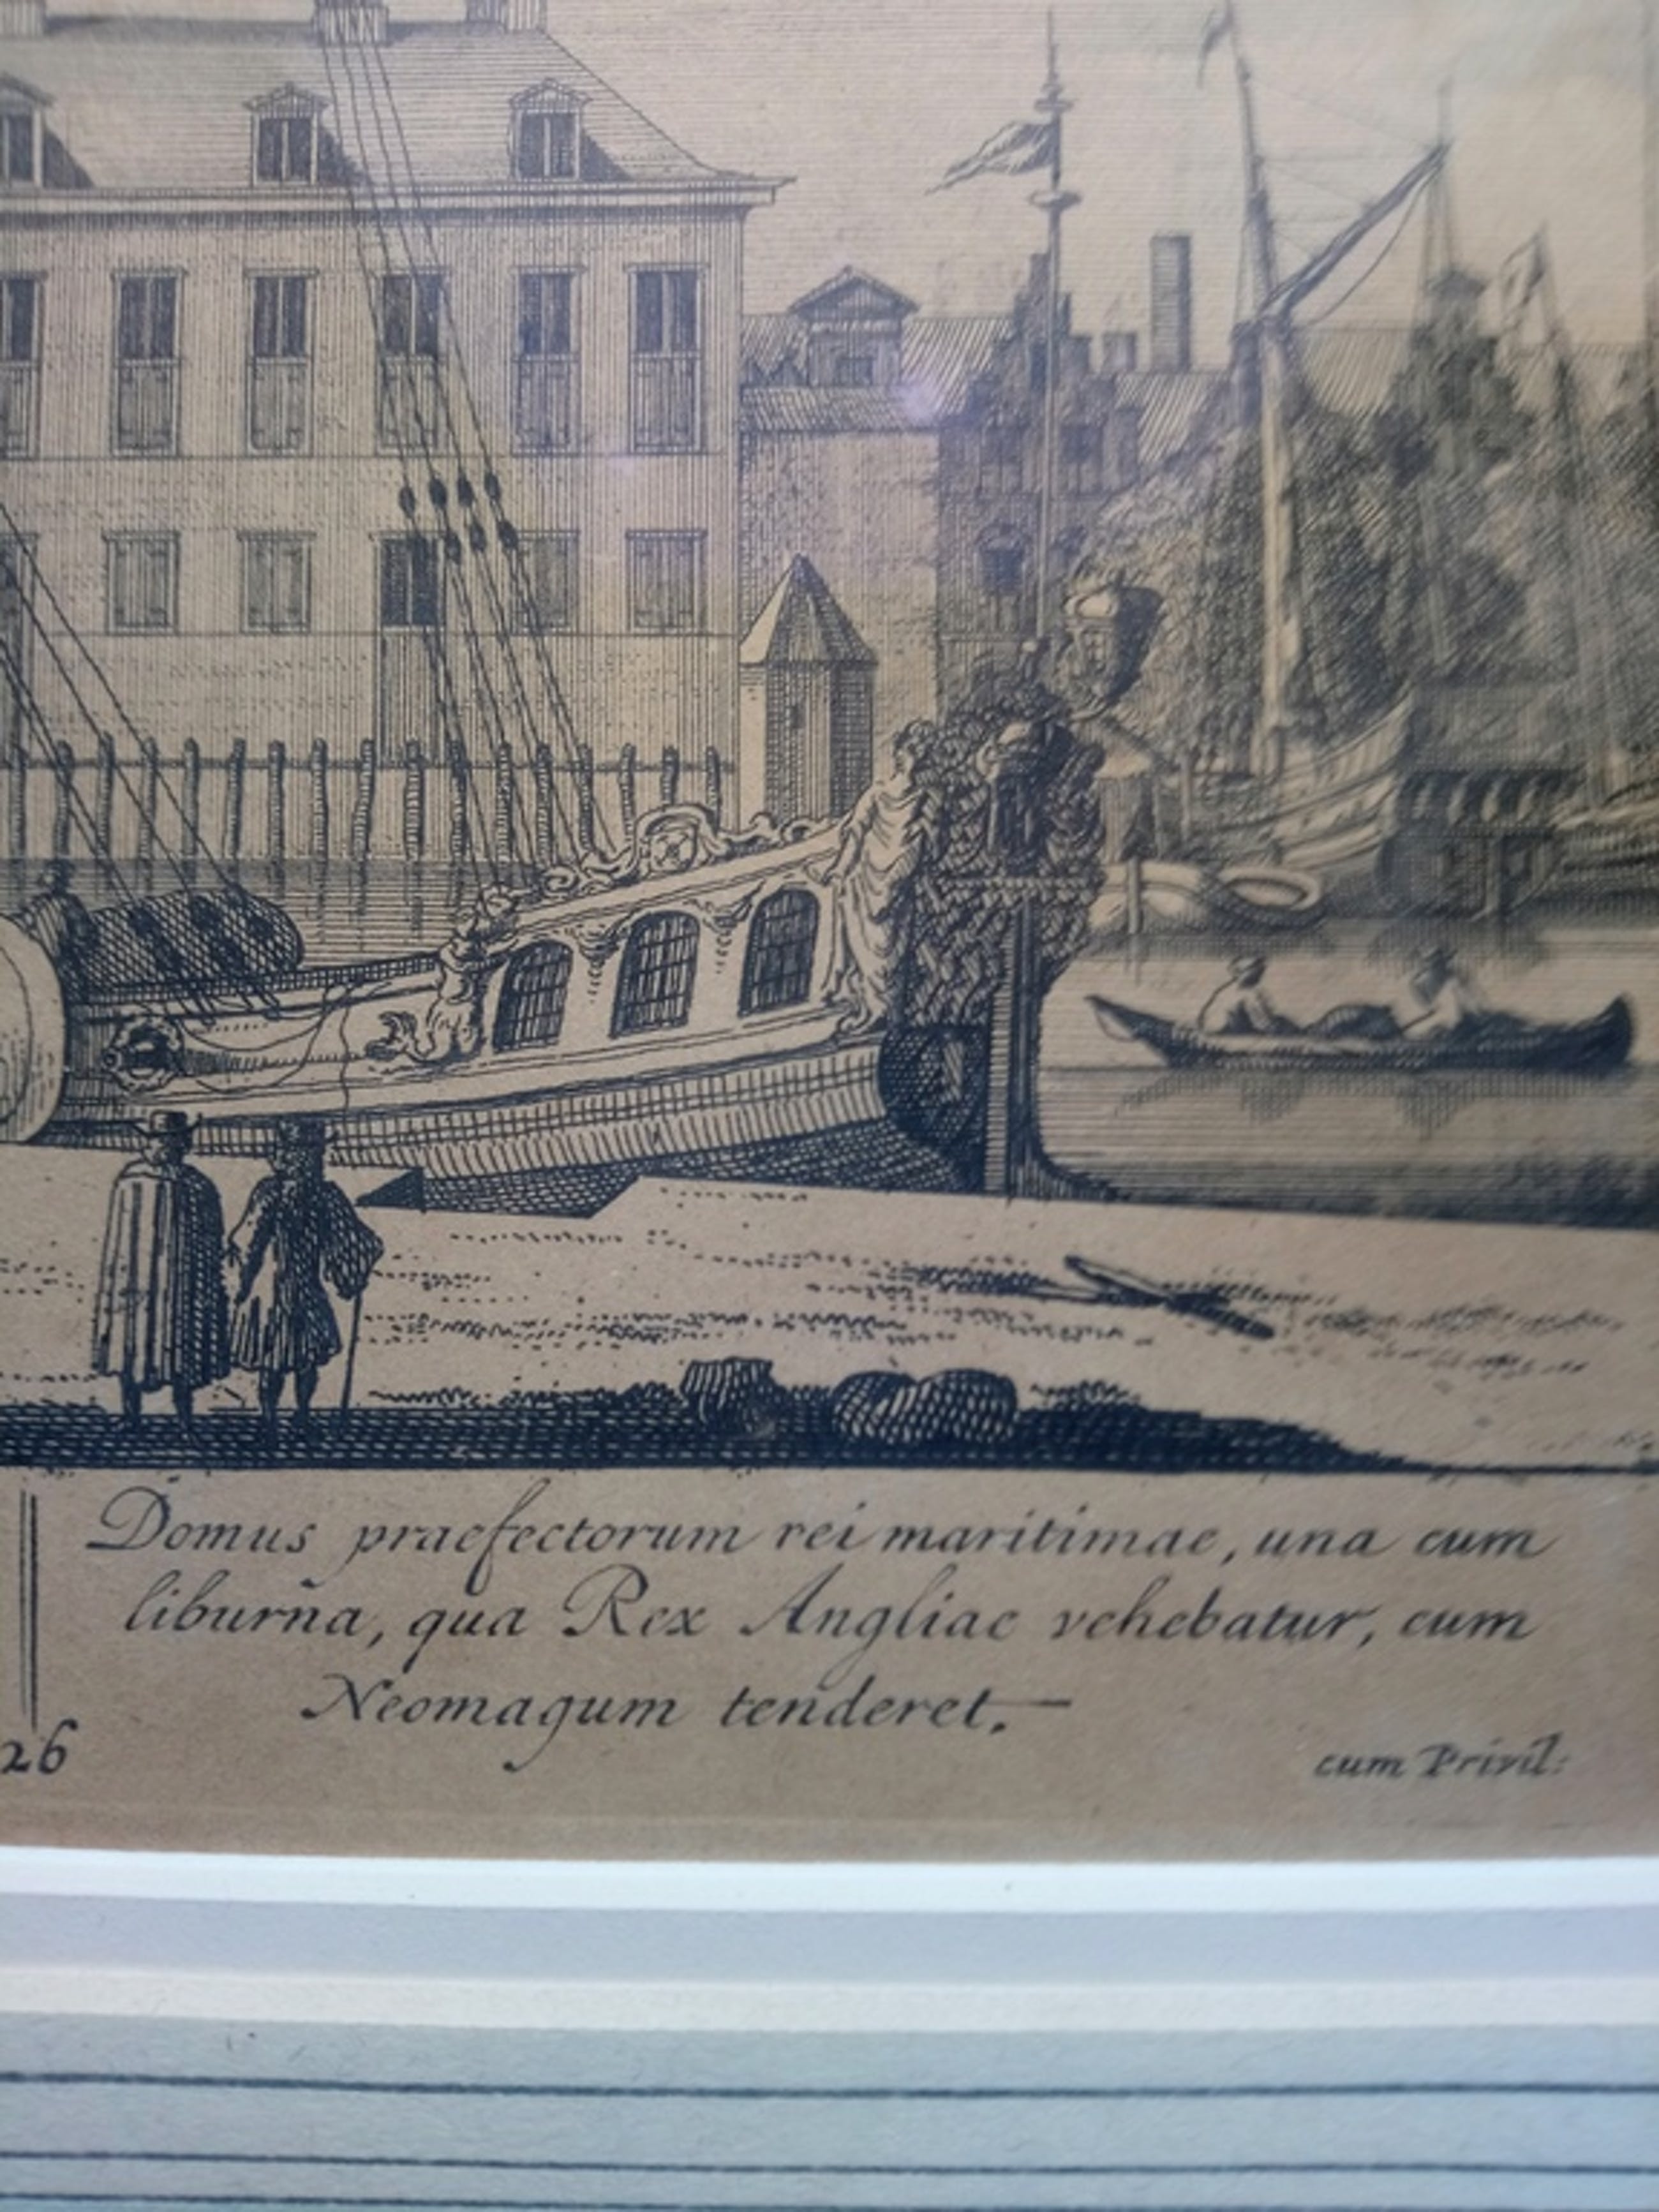 Domus praefectorum rei maritimae, una cum
liburna, qua Rex Angliae vehebatur, cum
Neomagum tenderet.—
26
cum Privil: